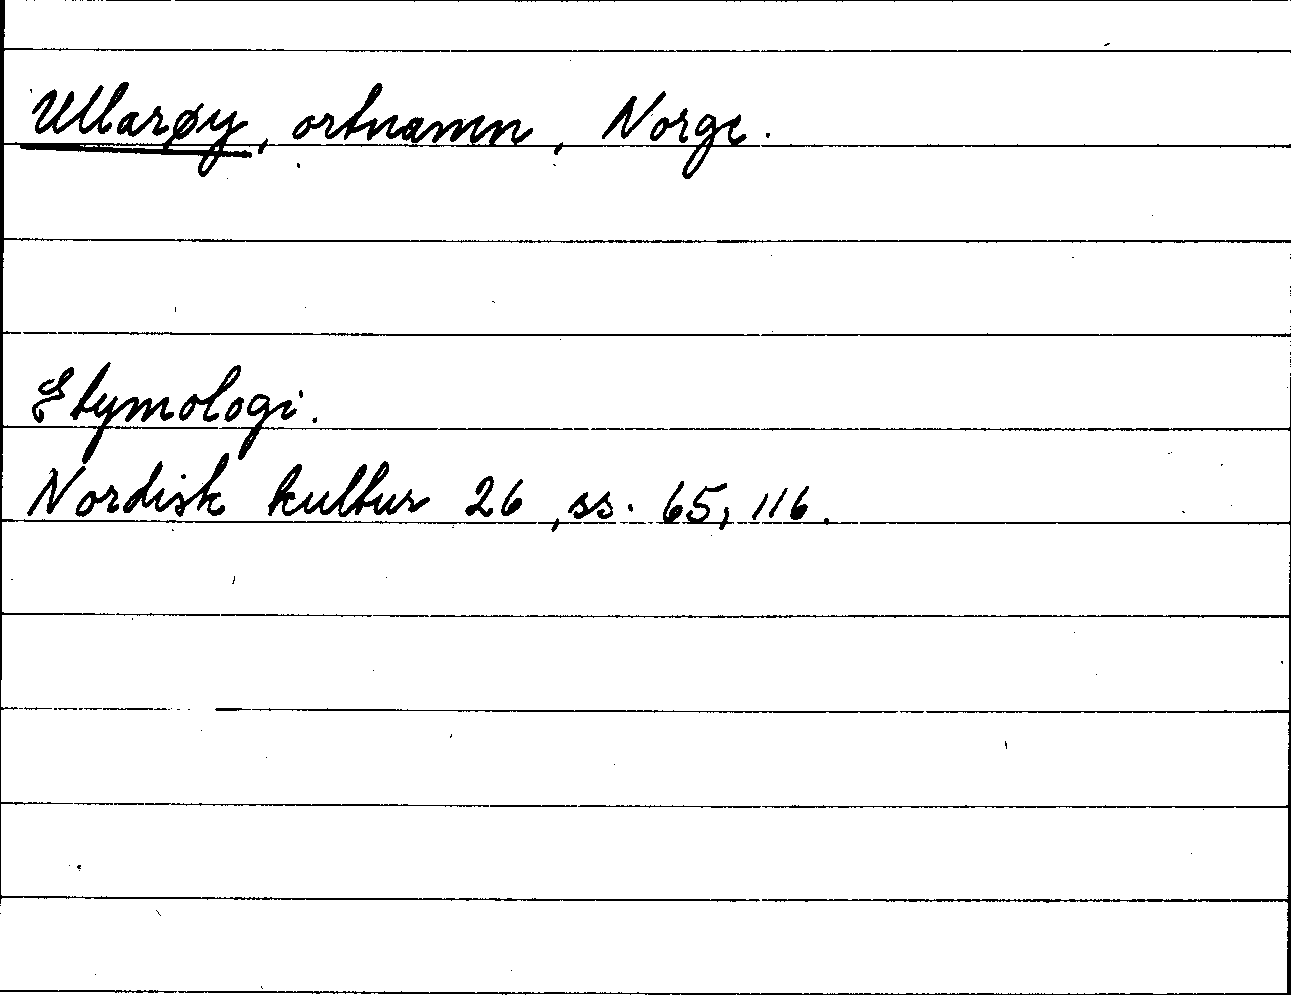 Ullarøy, ortnamn, Norge.
Etymologi.
Nordisk kultur 26, ss. 65, 116.